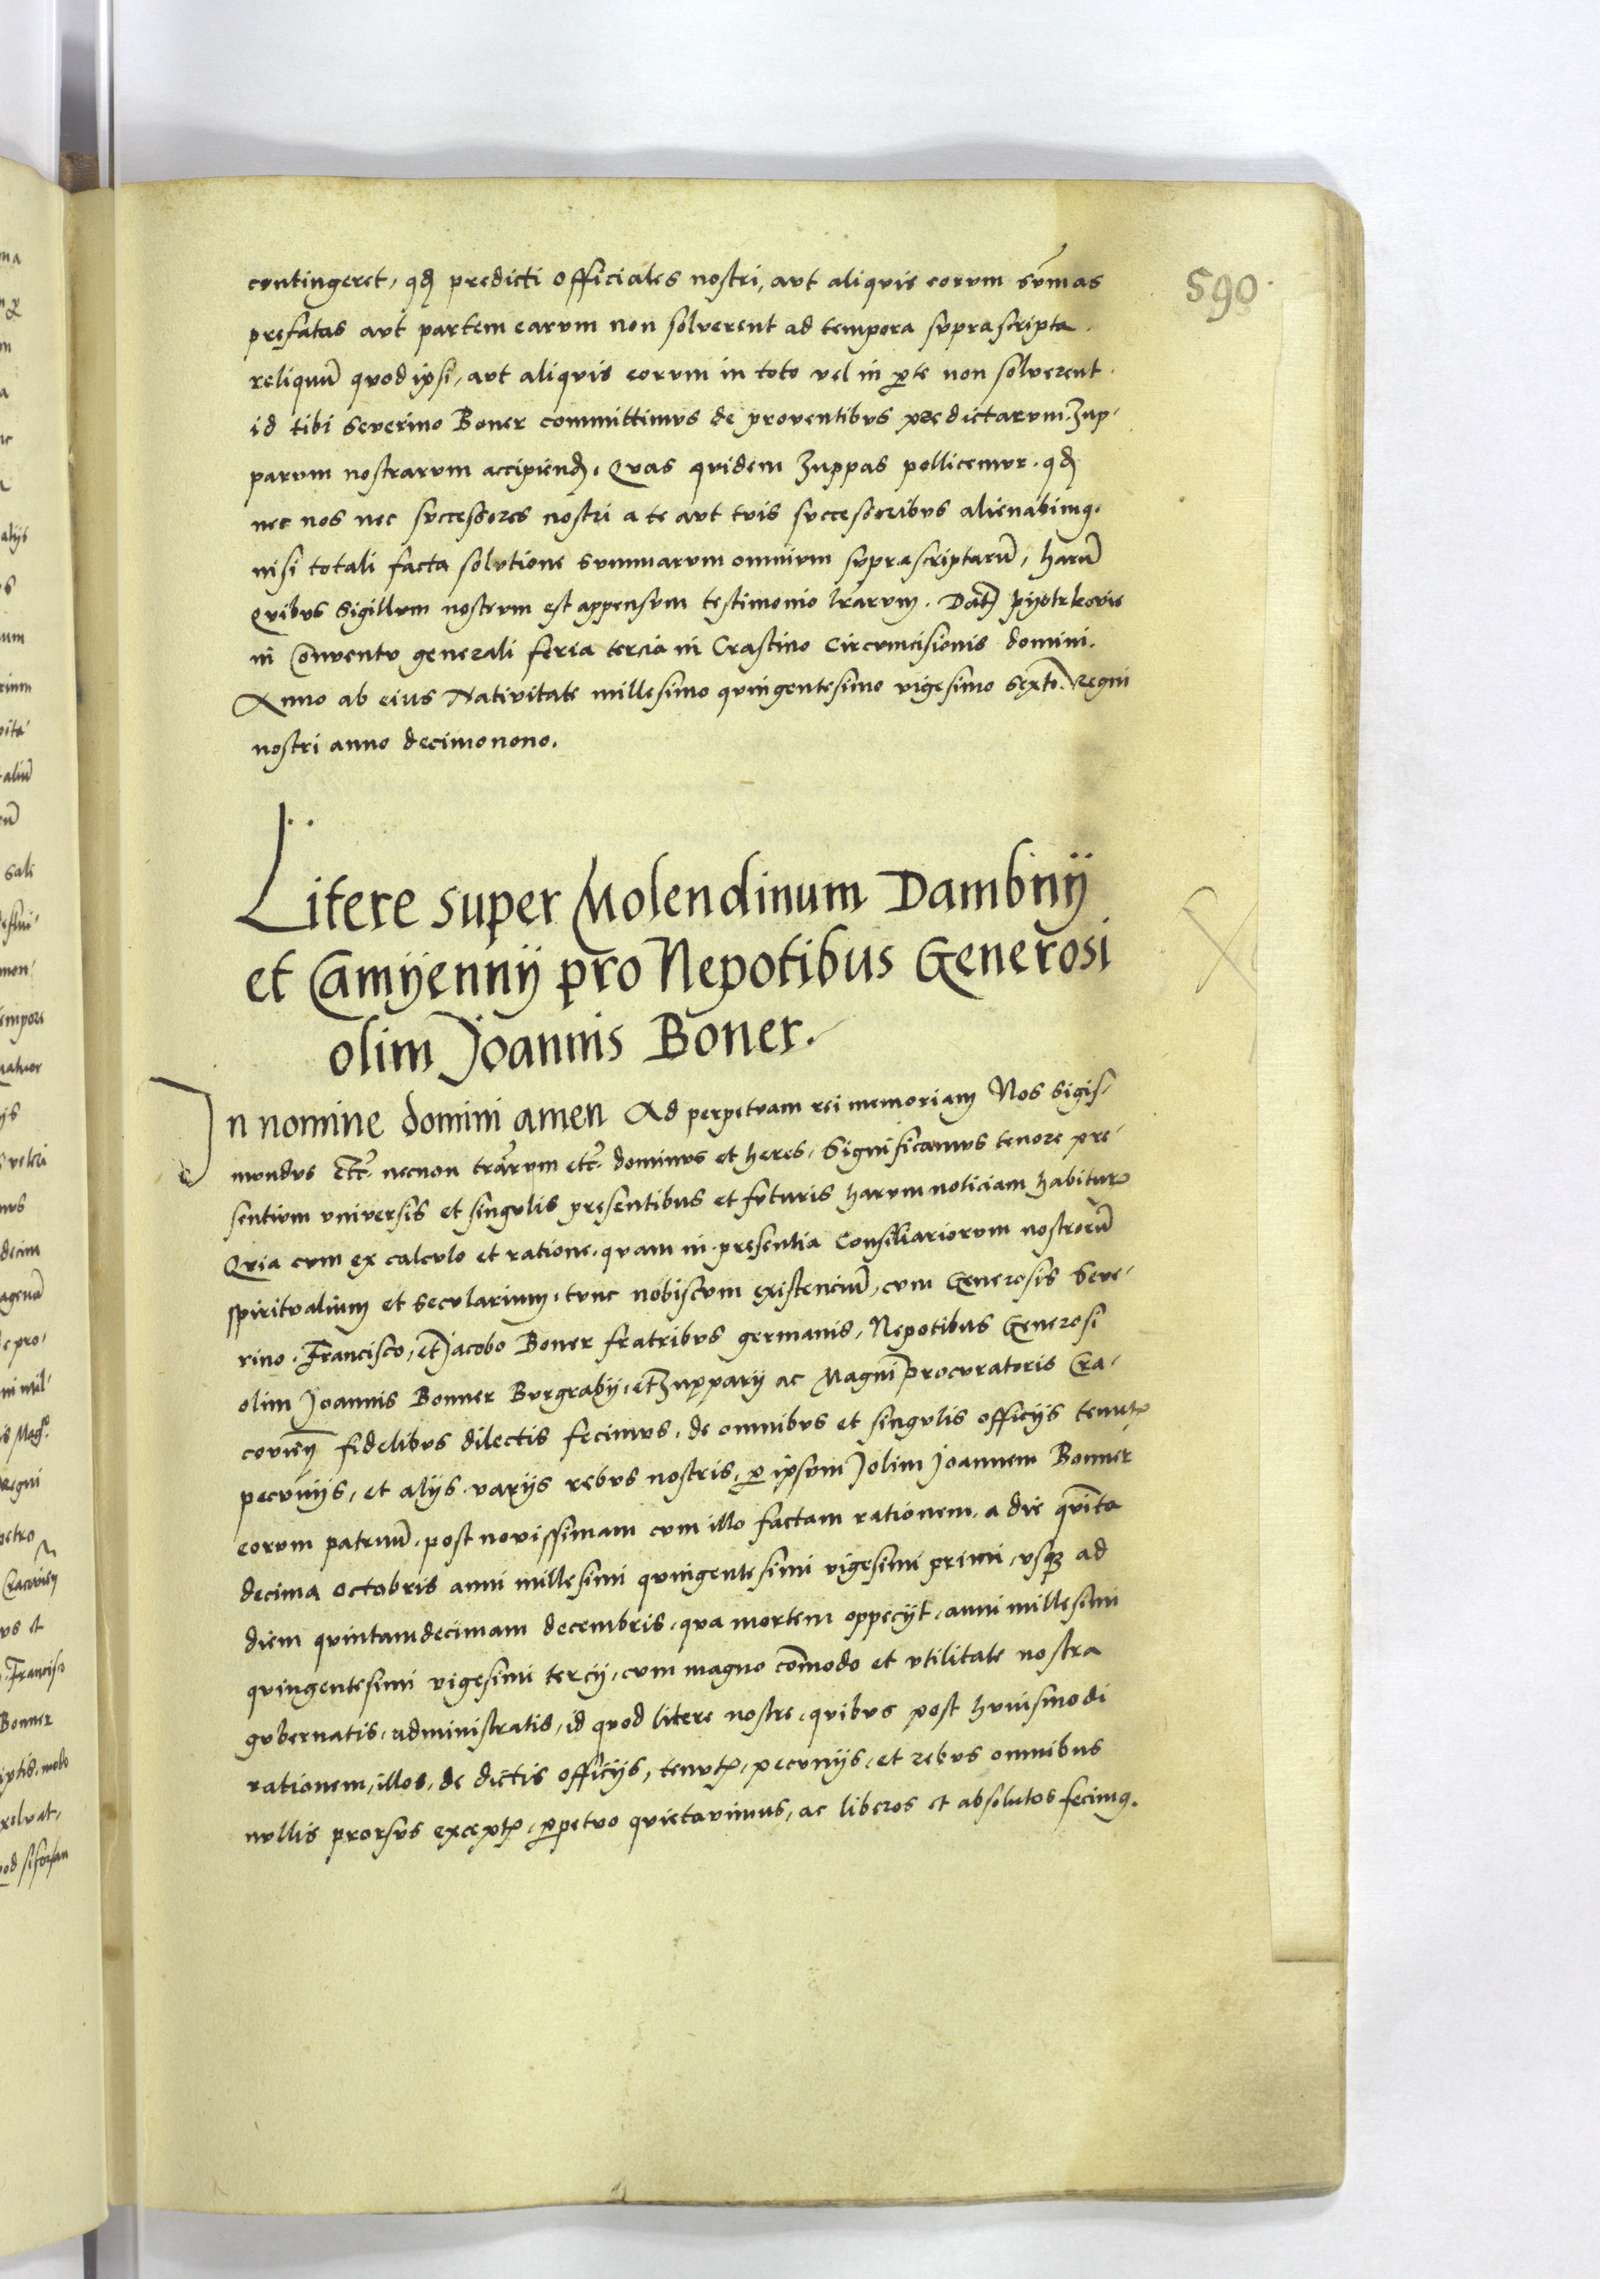 590
contingeret, qđ predicti officiales nostri, aut aliquis eorum sum̄as
prefatas aut partem earum non solverent ad tempora suprascripta.
reliquū quod ipsi, aut aliquis eorum in toto vel in p̱te non solverent.
id tibi Severino Boner committimus de proventibus predictarum Zup-
parum nostrarum accipienđ. Quas quidem Zuppas pollicemur. qđ
nec nos nec successores nostri a te aut tuis successoribus alienabimꝰ.
nisi totali facta solutione summarum omnium suprascriptarū, harū
Quibus Sigillum nostrum est appensum testimonio lr̄arum. Dat̄ Pyotrkovie
in Conventu generali feria tercia in Crastino Circumcisionis domini.
Anno ab eius Nativitate millesimo quingentesimo vigesimo sexto. Regni
nostri anno decimonono.
Litere super Molendinum Dambny
et Camyenny pro Nepotibus Generosi
olim Joannis Boner.
In nomine domini amen Ad perpetuam rei memoriam Nos Sigis-
mundus etc̄. necnon trār̄um etc̄. dominus et heres. Significamus tenore pre-
sentium universis et singulis presentibus et futuris harum noticiam habiturꝭ
Quia cum ex calculo et ratione. quam in presentia Consiliariorum nostrorū
spiritualium et secularium. tunc nobiscum existenciū, cum Generosis Seve-
rino. Francisco, et Jacobo Boner fratribus germanis, Nepotibus Generosi
olim Joannis Bonner Burgrabij, et Zupparij ac Magni procuratoris Cra-
covień fidelibus dilectis fecimus. de omnibus et singulis officijs tenutꝭ
pecunijs, et alijs varijs rebus nostris, ꝑ ipsum olim Joannem Bonner
eorum patruū. post novissimam cum illo factam rationem. a die quīta
decima octobris anni millesimi quingentesimi vigesimi primi, usqꝫ ad
diem quintamdecimam decembris. qua mortem oppecijt. anni millesimi
quingentesimi vigesimi tercij, cum magno com̄odo et utilitate nostra
gubernatis, administratis, id quod litere nostre, quibus post huiusmodi
rationem, illos, de dictis officijs, tenutꝭ, pecunijs, et rebus omnibus
nullis prorsus exceptꝭ, ꝑpetuo quietavimus, ac liberos et absolutos fecimꝰ.